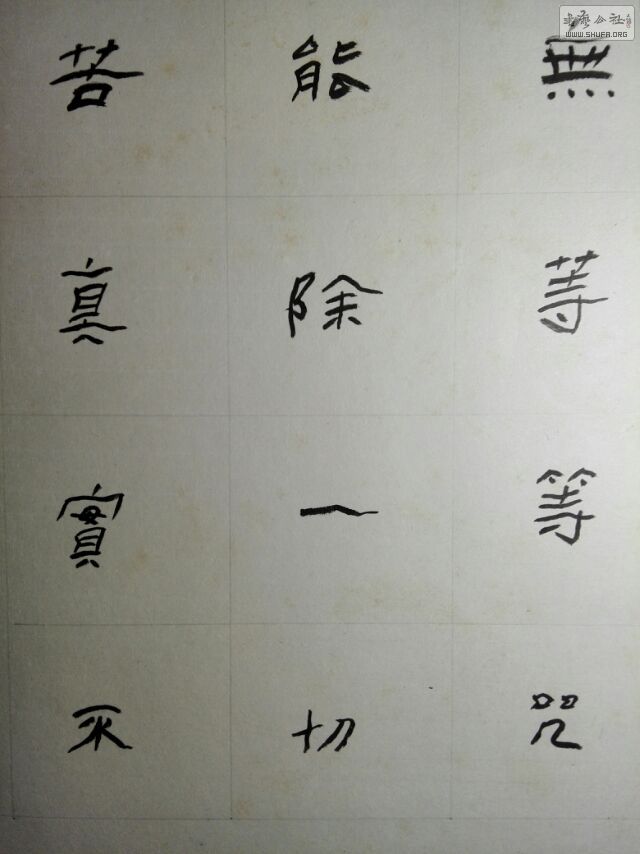 無等等咒
能除一切
苦真實不
書法公社
WWW.SHUFA.ORG